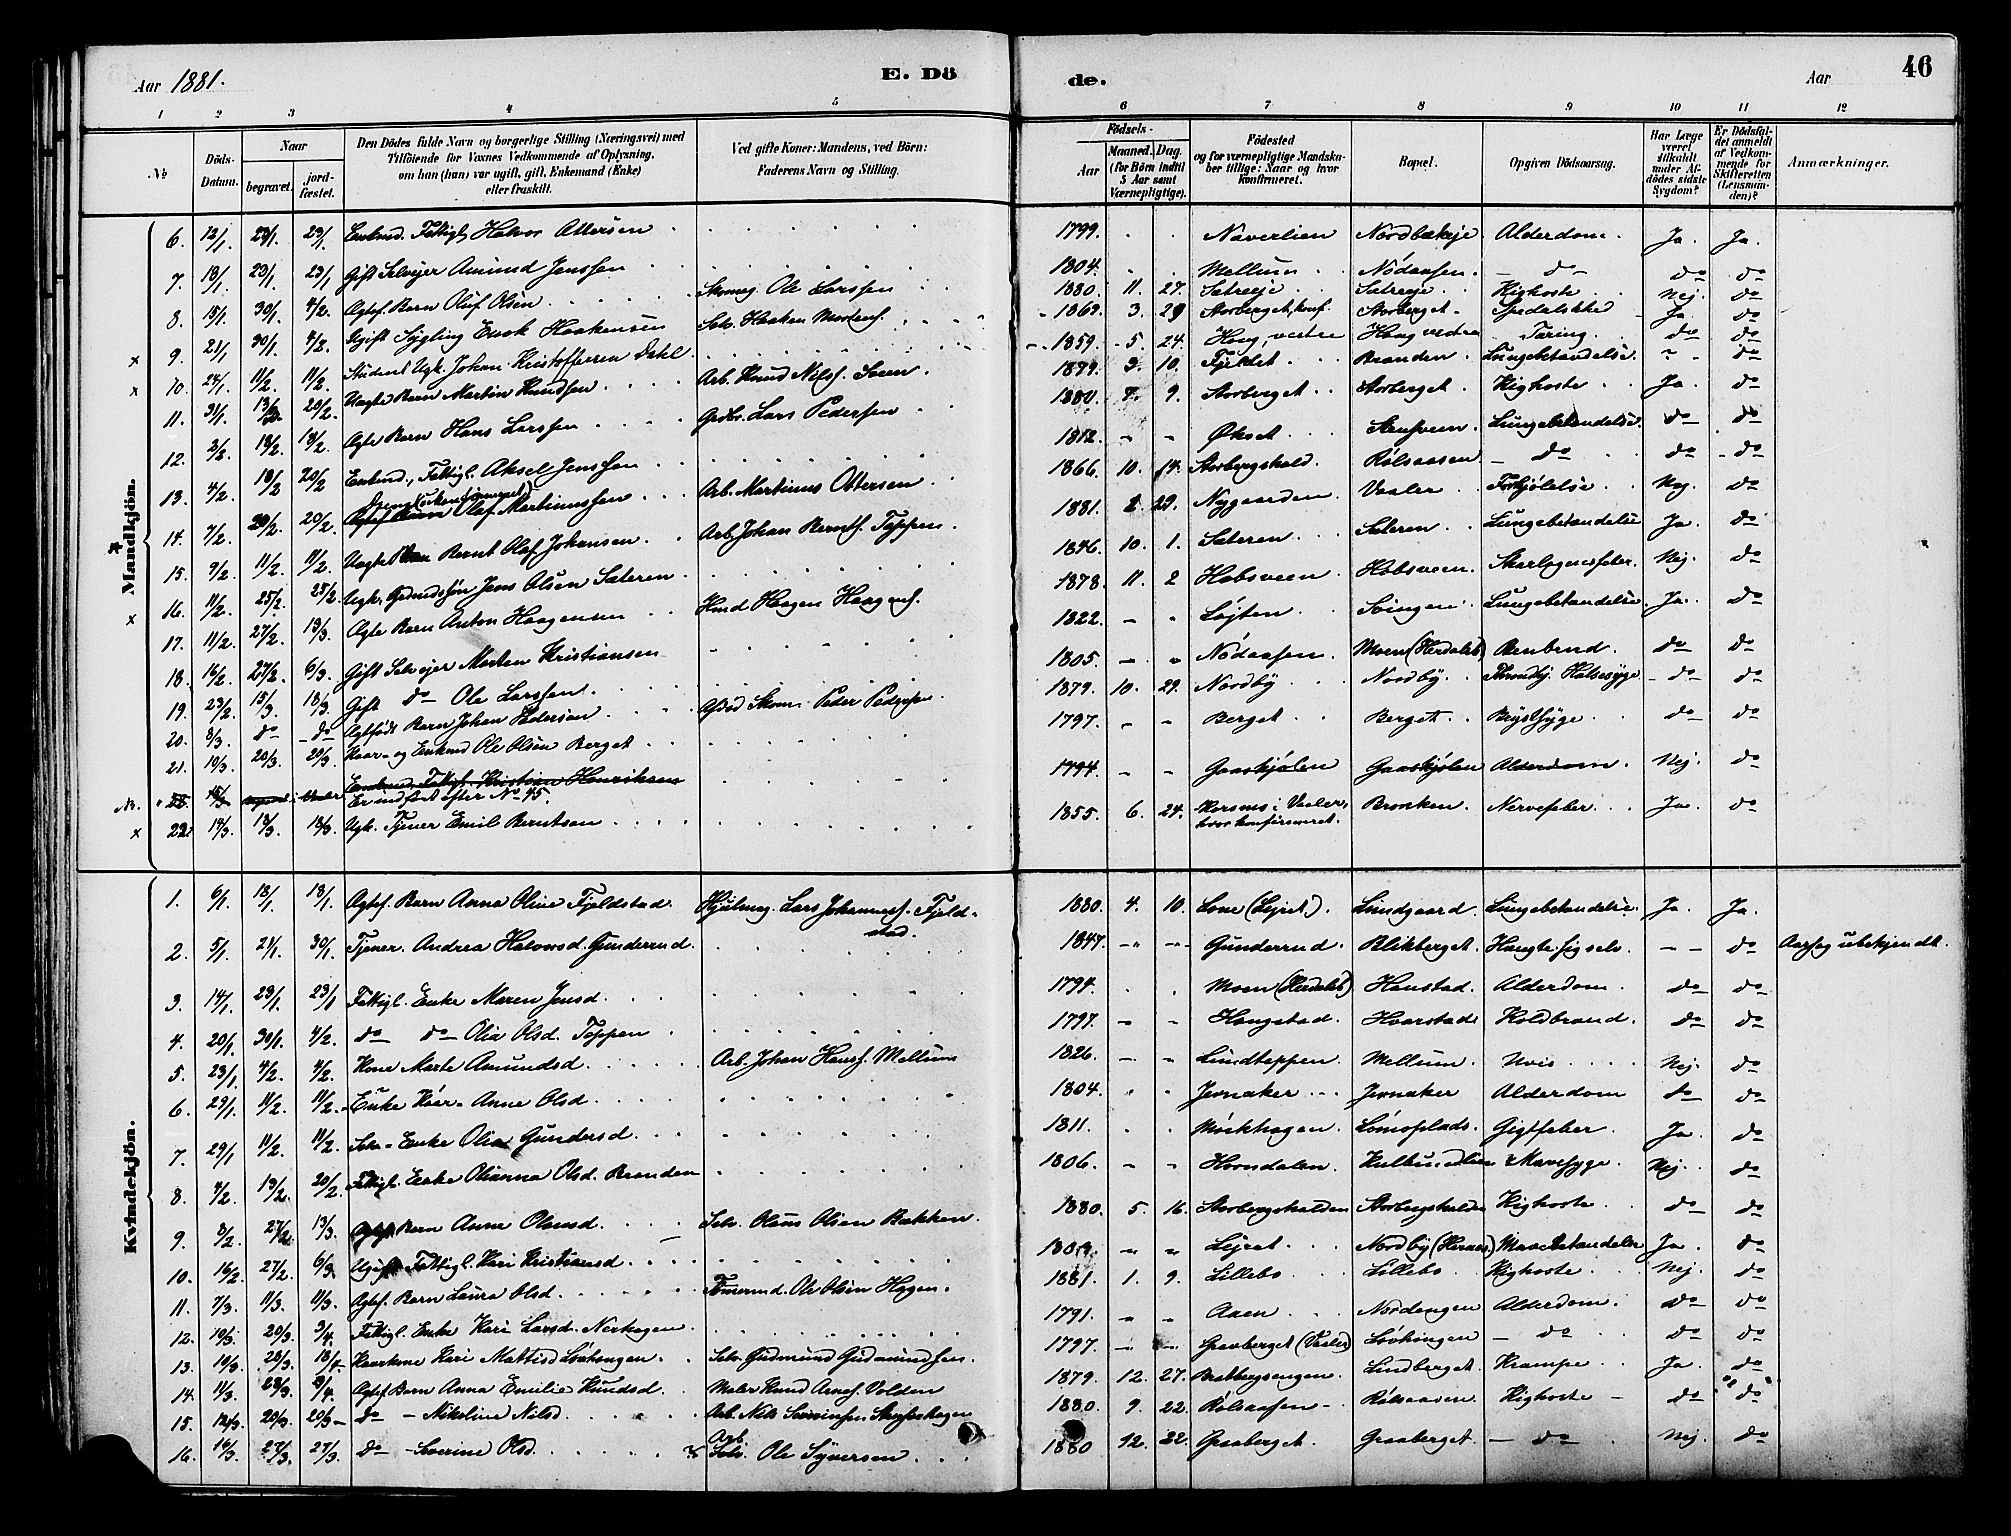 Aar 1881.
E. Dö
de.
Aar
46
1 2 3 4 5 6 7 8 9 10 11 12
No
Döds-Datum.
Naar
begravet.
jord-fæstet.
Den Dödes fulde Navn og borgerlige Stilling (Næringsvei) med
Tilföiende for Voxnes Vedkommende af Oplysning,
om han (hun) var ugift, gift, Enkemand (Enke)
eller fraskilt.
Ved gifte Koner: Mandens, ved Börn:
Faderens Navn og Stilling.
Födsels-
Aar
Maaned. Dag.
(for Börn indtil 5 Aar samt Værnepligtige).
Födested
og for værnepligtige Mandskaber tillige: Naar og hvor konfirmeret.
Bopæl.
Opgiven Dödsaarsag.
Har Læge været tilkaldt under Afdödes sidste Sygdom?
Er Dödsfaldet anmeldt af Vedkommende for Skifteretten (Lensmanden)?
Anmærkninger.
Mandkjön.
6. 12/1. 23/1. 23/1. Enkmd. Fattigl. Halvor Ottersen 1799. Naverlien Nordbækeje Alderdom. Ja. Ja.
7. 13/1. 23/1. 23/1. Gift Selvejer Amund Jenssen 1804. Mellum Nödaasen. do do do
8. 15/1. 30/1. 4/2. Ægtef. Barn Oluf Olsen Skomag. Ole Larssen 1880. 11. 27. Sætreeje Sætreeje Kighoste Nej. do
9. 21/1. 30/1. 4/2. Ugift Sygling Haakensen Selv. Haaken Mortens. 3. 29 Storberget, konf. Storberget. Spedalskhed Ja do
10. 24/1. 11/2. 11/2. Student Ugk. Johan Kristofferen Dahl 1859. 5. 24. Haug, vestre Haug vestre Tæring. do do
11. 31/1. 13/2. 20/2. Uægte Barn Martin Knudsen Arb. Knud Nils. 1879. 3. 10. Fjeldet Branden Lungebetændelse. do
12. 2/2. 18/2. 18/2. Ægte Barn Hans Larssen Grdbr. Lars Pedersen 1880. 9. Storberget Storberget. Kighoste Ja. do
13. 4/2. 18/2 20/2 Enkmd., Fattigl. Aksel Jenssen 1812. Økset Stensveen. Lungebetændelse. do do
14. 7/2. 20/2. 20/2. Dreng (ukonfirmeret) Olaf Martinussen Arb. Martinus Ottersen 1866. 10. 14. Storbergshald. Rølsaasen do do do
15. 9/2. 11/2. 11/2. Uægte Barn Bernt Olaf Johansen Arb. Johan Bernts. Tappen. 1881. 29. Nygaarden Vaaler Forkjølelse Nej. do
16. 11/2. 25/2. 25/2. Ugk. Grdmdssøn Jens Olsen Sæteren 1846. 10. 1. Sæteren Sæteren Lungebetændelse Ja. do
17. 11/2. 27/2. 13/3. Ægte Barn Anton Haagensen Hmd Haagen Haagens. 1878. 11. 2 Habsveen Habsveen. Skarlagensfeber. Nej. do
18. 16/2. 27/2. 6/3. Gift Selvejer Morten Kristiansen 1822. Løjten Svingen Lungebetændelse. Ja. do
19. 23/2. 15/3. 18/3. Gift do Ole Larssen. 1805. Nödaasen. Moen (Herdals) Benbrud. do do
20. 8/3. do do Ægtefödt Barn Johan Pedersen Afdöd Skom. Peder Pedersen 1879. 10. 29. Nordby Nordby. Halsesyge do do
21. 10/3. 20/3. 20/3. Kaar- og Enkmd Ole Olsen Berget 1797. Berget Berget. Brystsyge. do do
Enkmd. Fattigl. Kristian Henriksen
Er indført efter No 45. 1794. Gaaskjølen Gaaskjølen Alderdom. Nej. do
22. 14/3. 18/3. 18/3. Ugk. Tjener Emil Berntsen 1855. 6. 24. i Vaaler, hvor konfirmeret. Bronken. Nervefeber. Ja. do
Kvindekjön.
1. 6/1. 18/1. 18/1. Ægtef. Barn Anna Oline Fjeldstad. Hjulmag. Lars Johanness. Fjeldstad. 1880. 4. 10. Lone (Lejret). Lundgaard. Lungebetændelse. Ja. Ja.
2. 5/1. 21/1. 30/1. Tjener. Andrea Halvorsd. Gunderrud. 1847. Gunderrud. Blikberget. Hængte sig selv. do Aarsag ubekjendt.
3. 14/1. 23/1. 23/1 Fattigl. Enke Maren Jensd. 1794. Moen (Herdals) Haustad. Alderdom. do do
4. 20/1. 30/1. 4/2. do do Olia Olsd. Tappen 1797. Haugstad. Hvarstad. Koldbrand. do do
5. 23/1. 4/2. 4/2. Kone Marte Amundsd. Arb. Johan Hans. Mellum 1826. Lundtappen Mellum. Nej. do
6. 23/1. 11/2. 11/2. Enke Kaar- Anne Olsd. 1804. Jernaker Jernaker Alderdom do do
7. 29/1 11/2. 11/2. Selv.- Enke Olia Gundersd. 1811. Mørkhagen. Lomoplads. Gigtfeber. Ja. do
8. 4/2. 13/2. 20/2. Fattigl. Enke Olianna Olsd. Branden 1806. Horndalen. Mavesyge. Nej. do
9. 8/2. 27/2. 13/3. Ægtef. Barn Anne Olausd. Selv. Olaus Olsen Bakken. 1880. 5. 16. Storbergshalden Storbergshalden Kighoste do do
10. 16/2. 27/2. 6/3. Ugift Fattigl. Kari Kristiansd. Lejret Nordby (Hernæs) Mavebetændelse Ja. do
11. 7/3. 11/3. 11/3. Ægtef. Barn Laura Olsd. Tømrmd. Ole Olsen Hagen. 1881. 1. 9. Lillebo Lillebo Kighoste Nej. do
12. 10/3. 20/3. 3/4. Fattigl. Enke Kari Larsd. Nerhagen. 1791. Aaen Nordengen Alderdom. do do
13. 10/3. 20/3. 18/4. Kaarkone Kari Mattisd Løvhaugen. Selv. Gudmund Gudmundsen. 1797. Graaberget (Vaaler) Løvhaugen do do do
14. 11/3. 28/3. 3/4. Ægtef. Barn Anna Emilie Knudsd. Maler Knud Arnes. Volden 1879. 12. 27. Bratbergsengen. Lindberget. Krampe Ja. do
15. 12/3. 20/3. 20/3 do Nikoline Nilsd. Arb. Nils Severinsen 1880. 9. 22. Rølsaasen Rølsaasen. Kighoste do do
16. 16/3. 27/3. 27/3. do Severine Olsd. Arb. Selv. Ole Syversen 1880 12. 22. Graaberget. Graaberget. do Nej. do